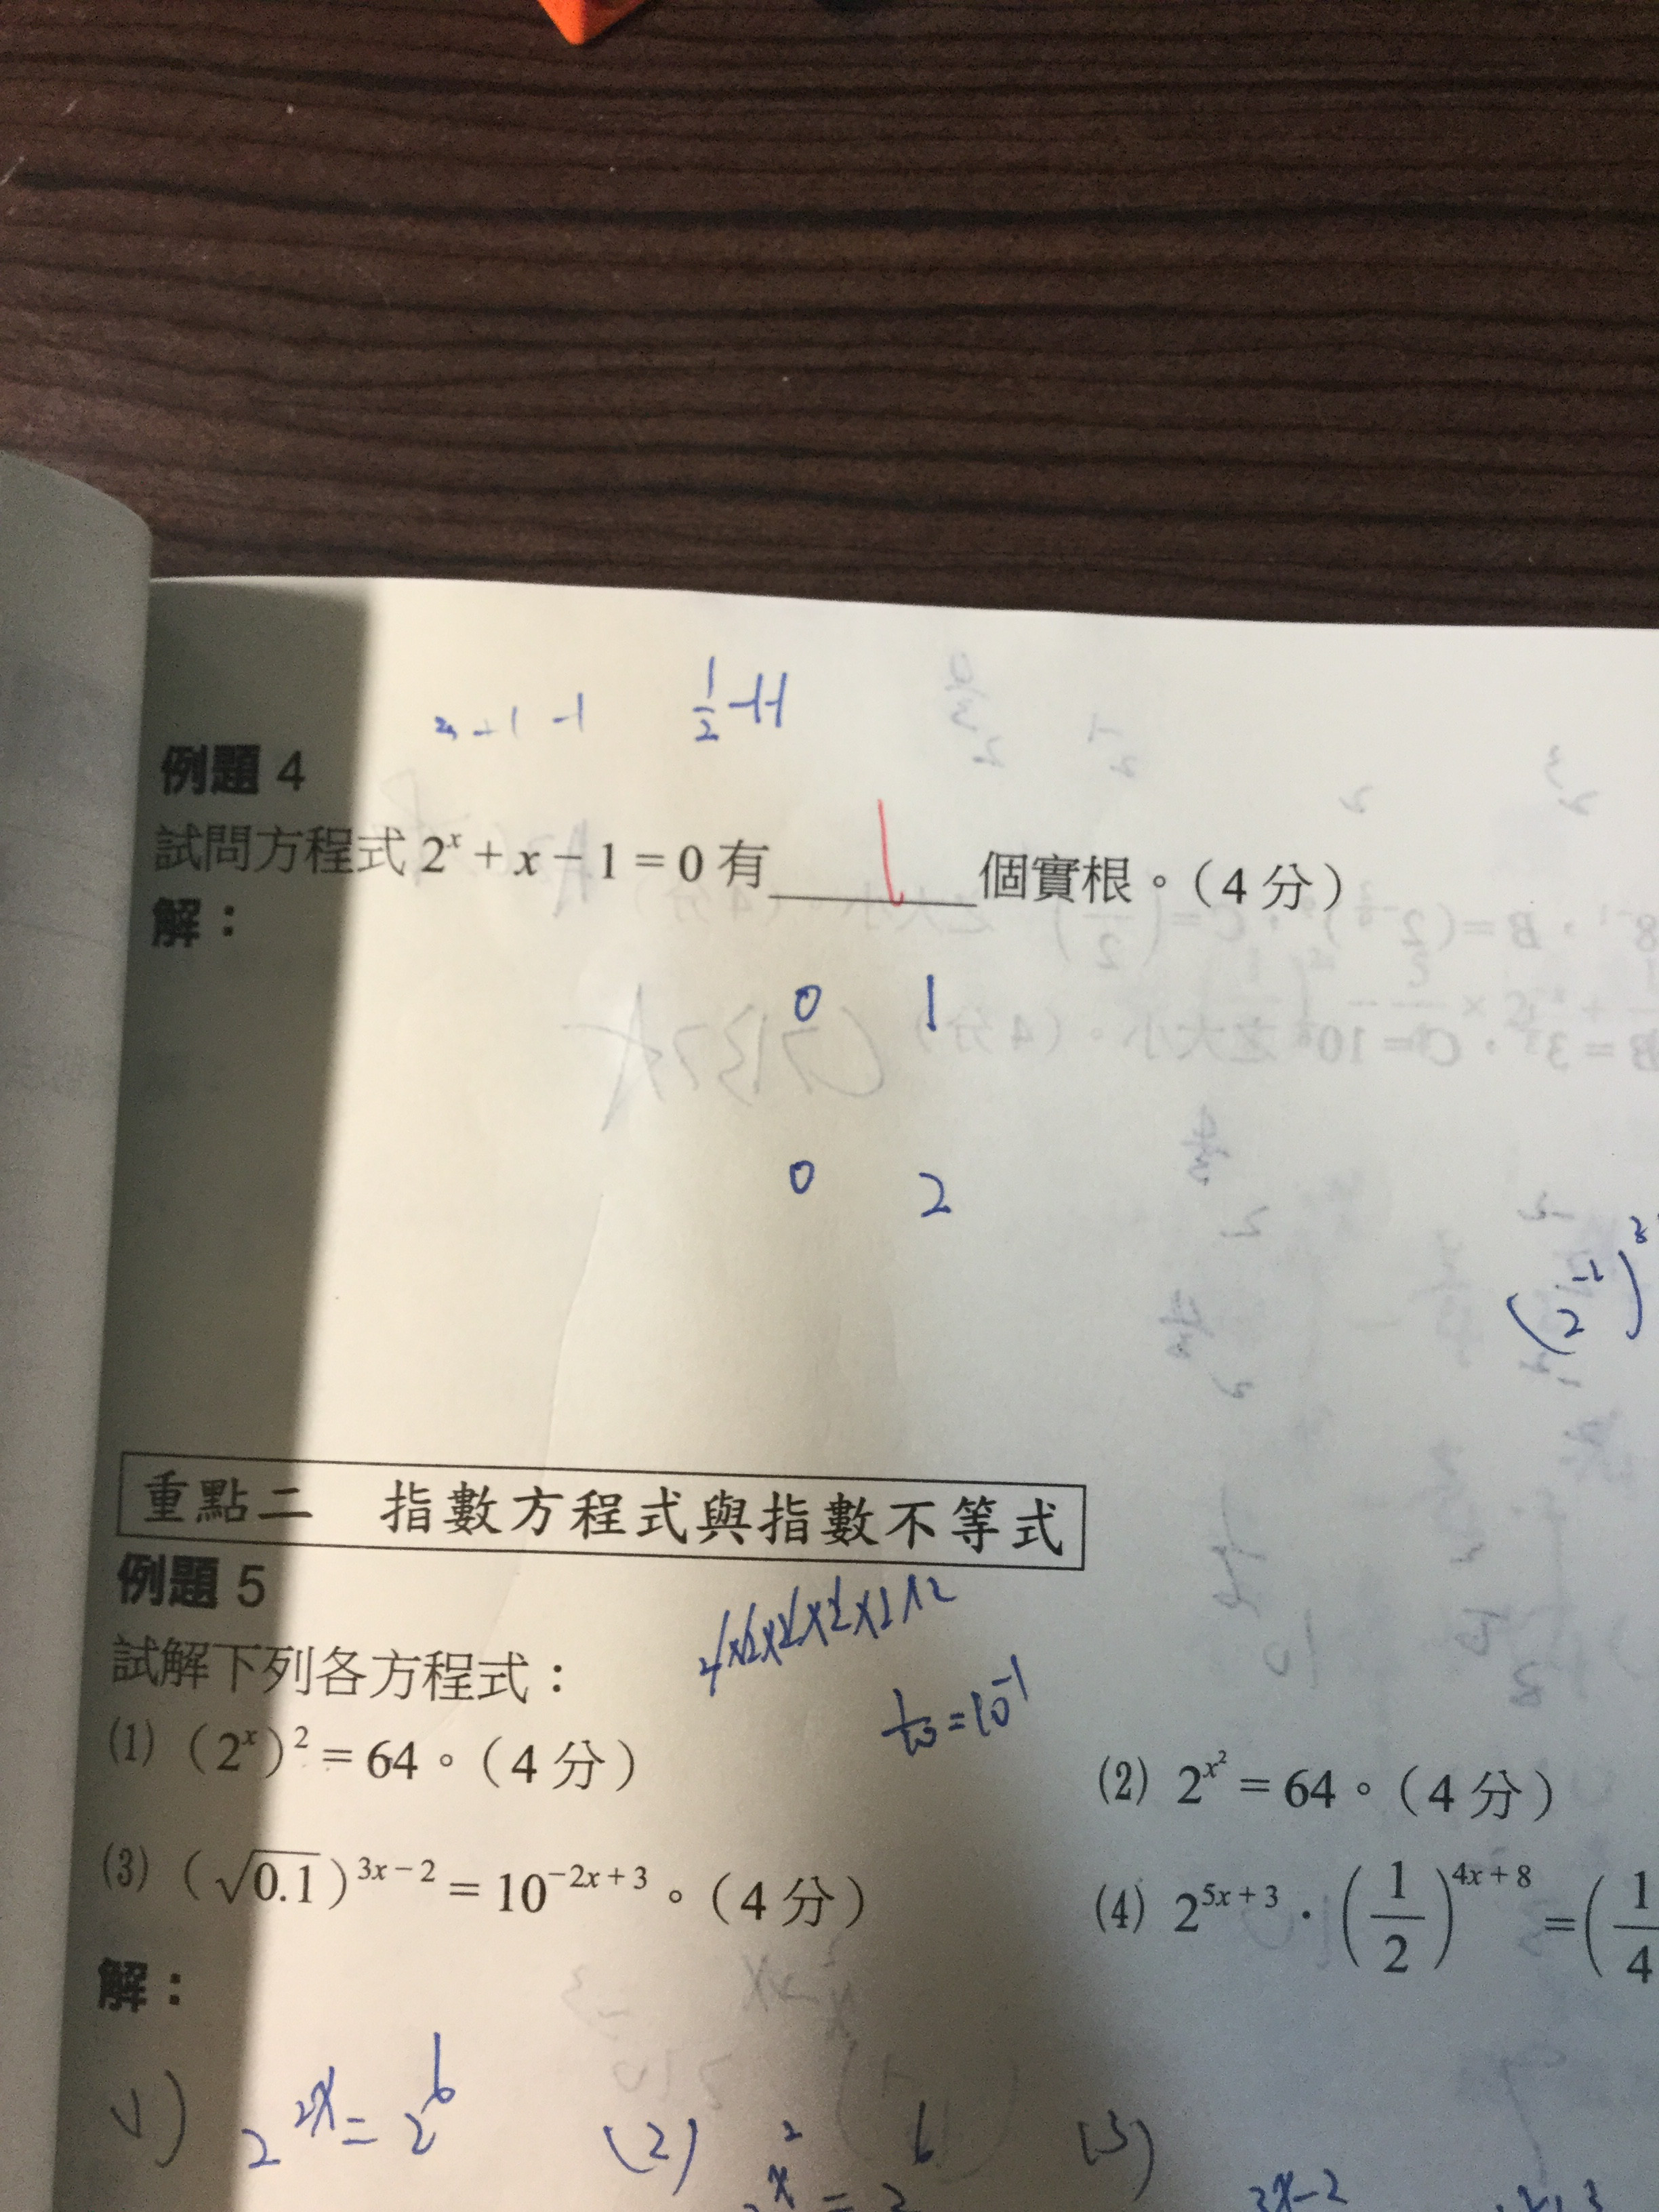 +1 -1 1/2 -1-1
例題 4
試問方程式 2ˣ + x − 1 = 0 有______個實根。(4 分)
解:
0 1
0 2
(2⁻¹)
重點二 指數方程式與指數不等式
例題 5
試解下列各方程式:
1/10 = 10⁻¹
(1) (2ˣ)² = 64。(4 分)
(2) 2^{x²} = 64。(4 分)
(3) (√0.1)^{3x−2} = 10^{−2x+3}。(4 分)
(4) 2^{5x+3}·(1/2)^{4x+8} = (1/4
解:
(1) 2^{2x} = 2⁶ (2) (3)
3x-2